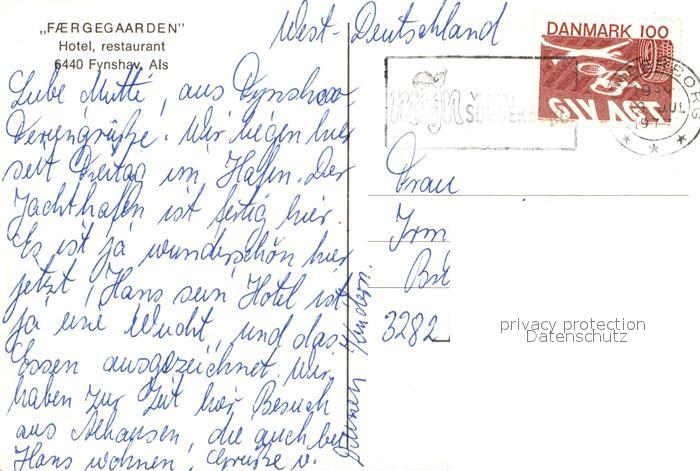 „FÆRGEGAARDEN"
Hotel, restaurant
6440 Fynshav, Als
West-Deutschland
DANMARK 100
GIV AGT
Liebe Mutti, aus Fynshav
Feriengrüße. Wir liegen hier
seit Freitag im Hafen. Der
Jachthafen ist fertig hier.
Es ist ja wunderschön hier
jetzt, Hans sein Hotel ist
ja eine Wucht, und das
Essen ausgezeichnet. Wir
haben zur Zeit hier Besuch
aus, die auch bei
Hans wohnen, Grüße v.
Kindern.
Frau
Irm
3282
privacy protection
Datenschutz